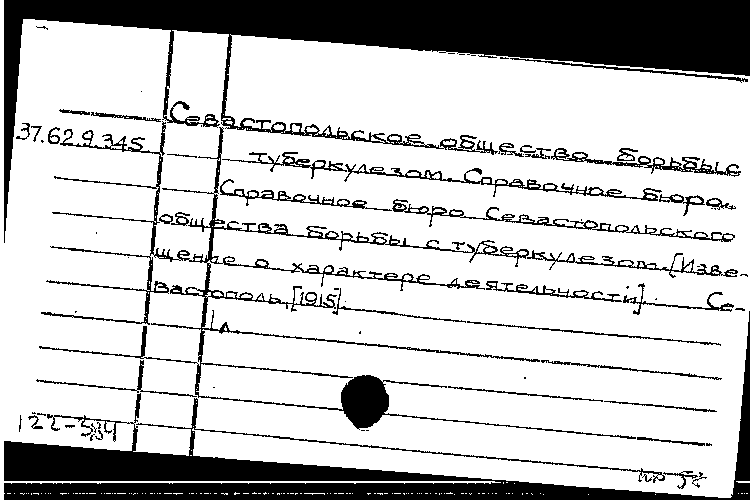 Севастопольское общество борьбы с
37.62.9.345
туберкулезом. Справочное бюро.
Справочное бюро Севастопольского
общества борьбы с туберкулезом. [Изве-
щение о характере деятельности]. Се-
вастополь, [1915].
1 л.
122-334